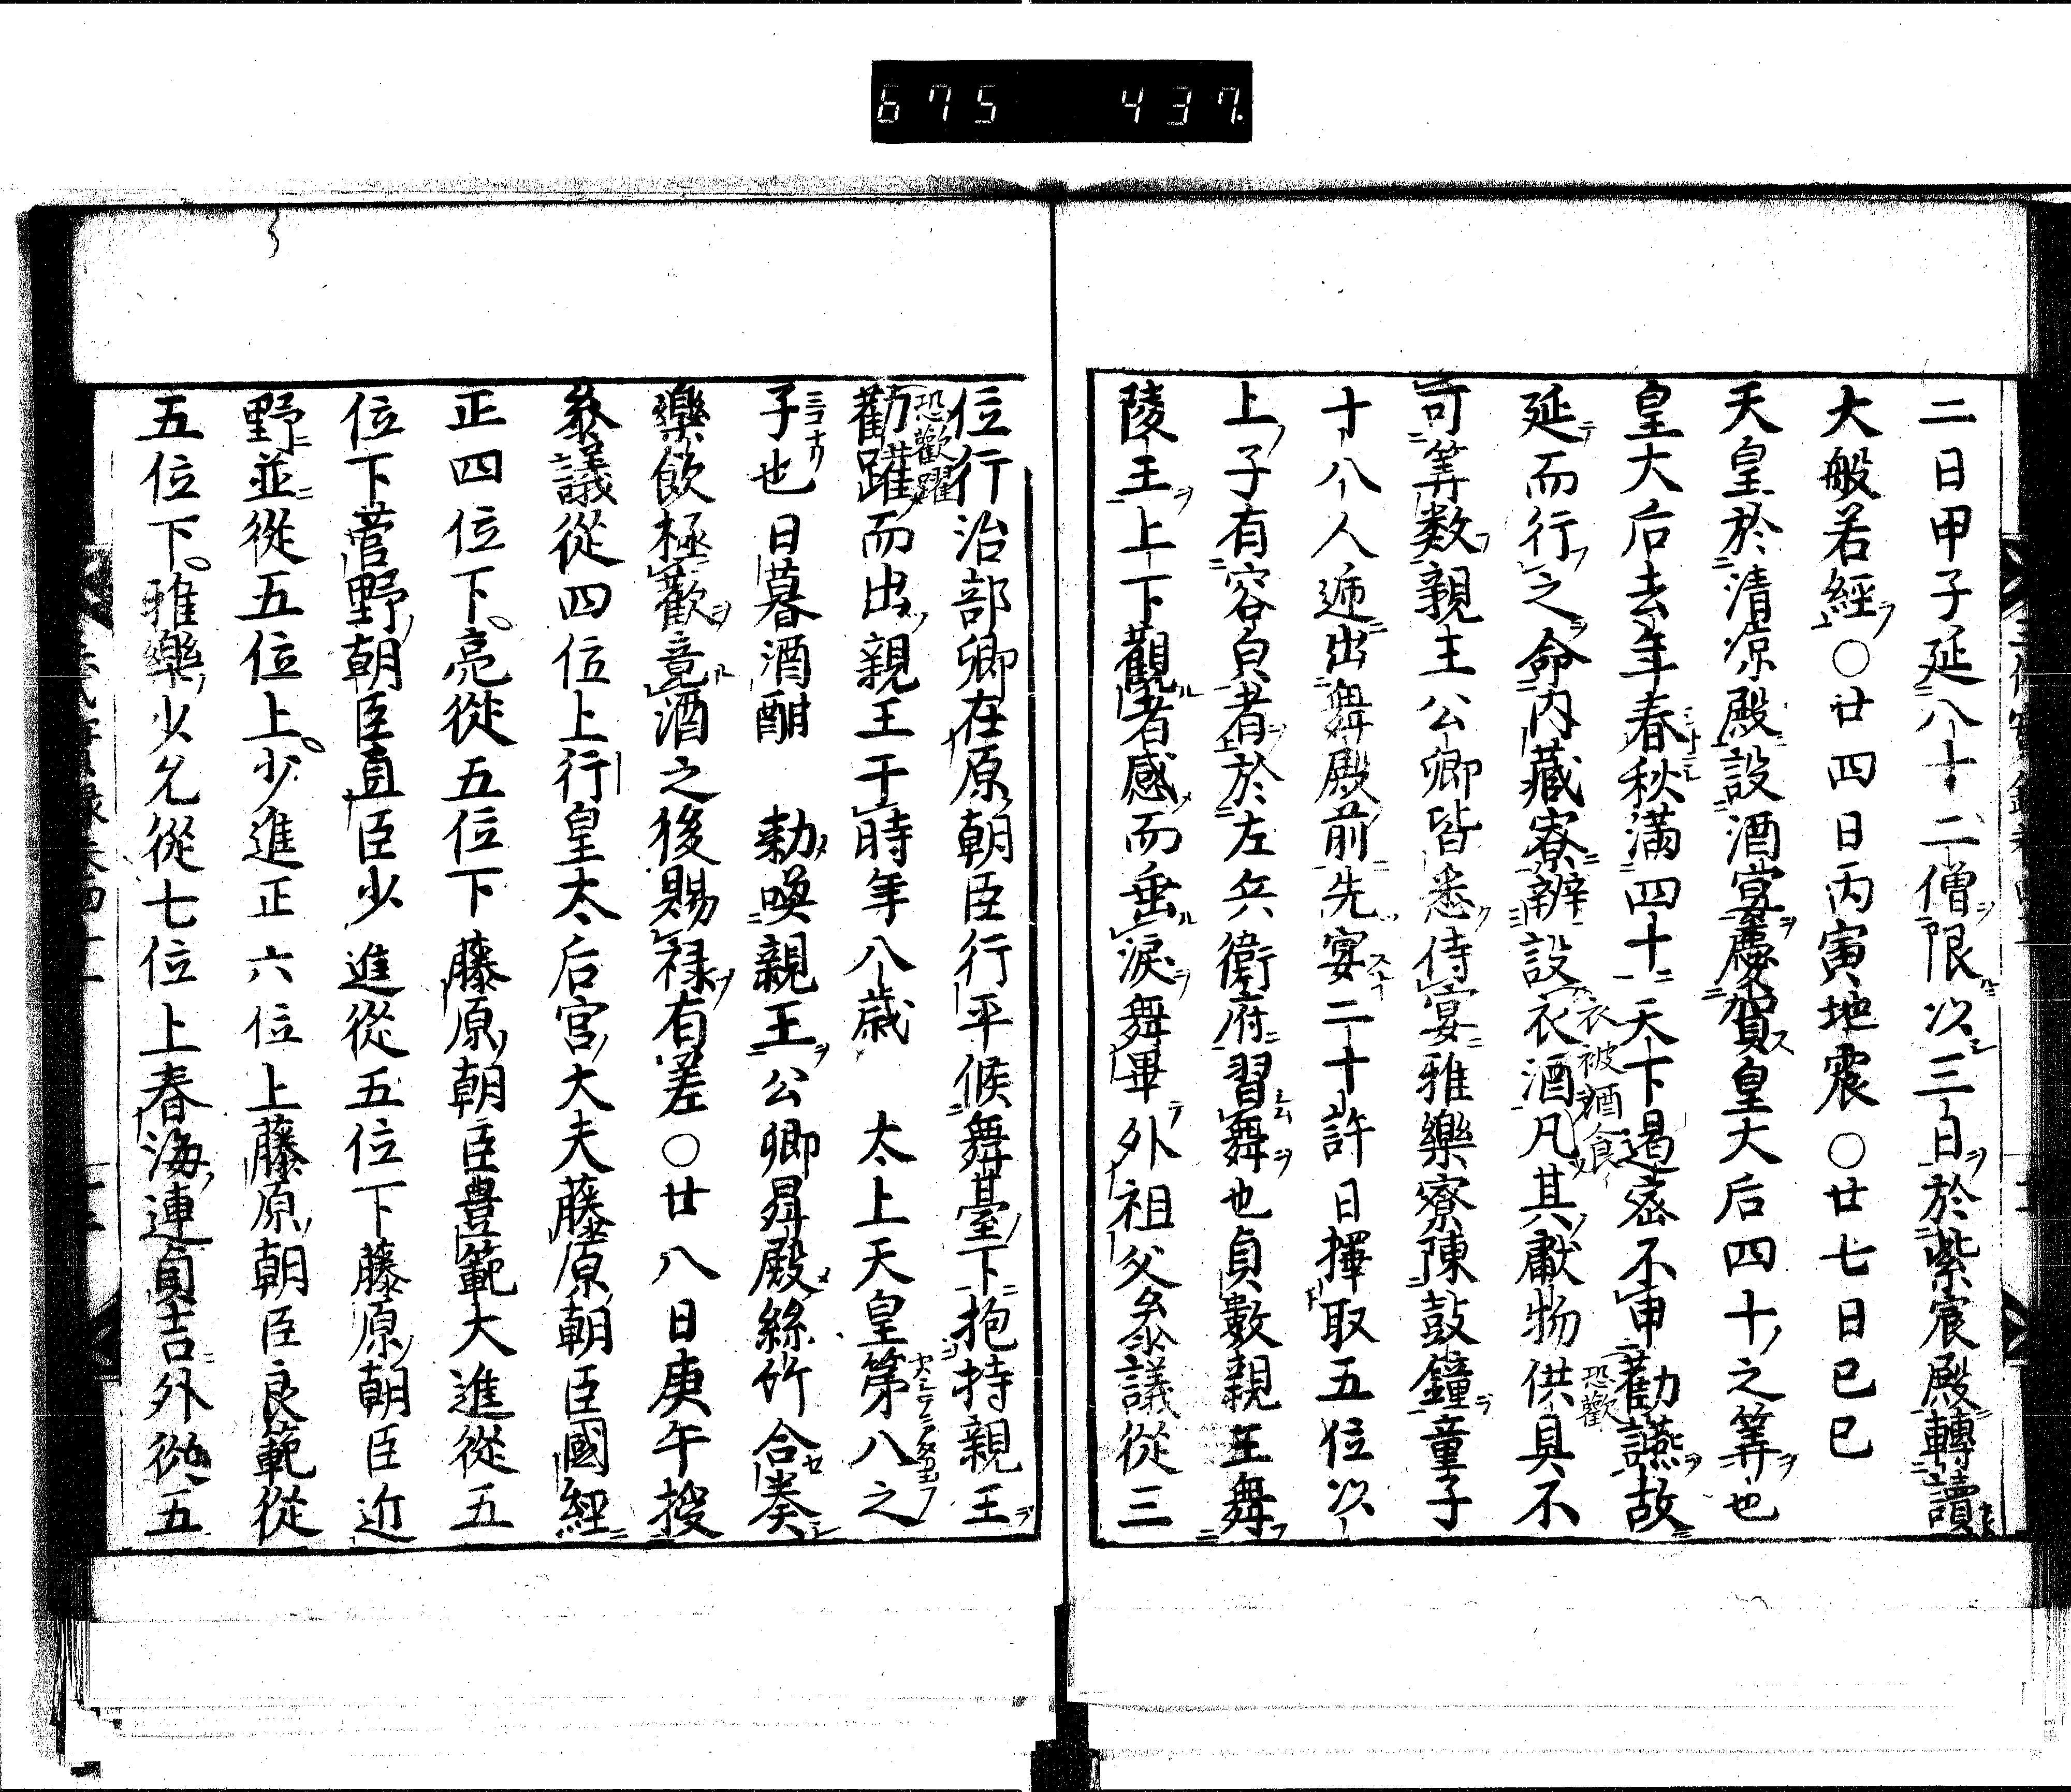 675 437
二日甲子延八十二僧限以三日於紫宸殿轉讀
大般若經○廿四日丙寅地震○廿七日己巳
天皇於清涼殿設酒宴慶賀皇大后四十之筭也
皇大后去年春秋滿四十天下遏密不申勸讌故
恐歡
延而行之命內藏寮辨設衣酒凡其獻物供具不
衣被酒食
可筭数親王公卿皆悉侍宴雅樂寮陳鼓鐘童子
十八人遞出舞殿前先宴二十許日擇取五位以
上子有容皃者於左兵衛府習舞也貞數親王舞
陵王上下觀者感而垂淚舞畢外祖父叅議從三
位行治部卿在原朝臣行平候舞臺下抱持親王
恐歡躍
勸躍而出親王于時年八歲 太上天皇第八之
子也日暮酒酣 勅喚親王公卿昇殿絲竹合奏
樂飲極歡竟酒之後賜祿有差○廿八日庚午授
叅議從四位上行皇太后宮大夫藤原朝臣國經
正四位下亮從五位下藤原朝臣豊範大進從五
位下菅野朝臣直臣少進從五位下藤原朝臣近
野並從五位上少進正六位上藤原朝臣良範從
五位下雅樂少允從七位上春海連貞吉外從五